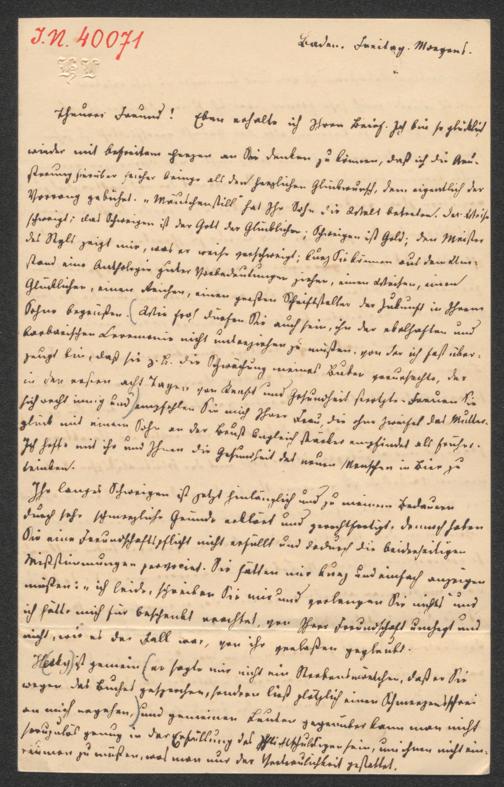 J.N. 40071
Baden. Freitag. Morgens.
Theurer Freund! Eben erhalte ich Ihren Brief. Ich bin so glücklich
wieder mit befreitem Herzen an Sie denken zu können, daß ich die Aeu-
ßerung hierüber sicher bringe als den herzlichen Glückwunsch, dem eigentlich der
Vorrang gebührt. „Mäuschenstill" hat Ihr Sohn die Welt betreten. Der Weise
schweigt; das Schweigen ist der Gott der Glücklichen; Schweigen ist Gold; den Meister
des Styls zeigt mir, was er weise verschweigt; kurz Sie können aus dem Um-
stand eine Anthologie guter Vorbedeutungen ziehen, einen Weisen, einen
Glücklichen, einen Reichen, einen großen Schriftsteller der Zukunft in Ihrem
Sohne begrüßen. (Wie froh dürfen Sie auch sein, ihn der ekelhaften und
barbarischen Ceremonie nicht unterziehen zu müssen, von der ich fast über-
zeugt bin, daß sie z.B. die Schwächung meines Buben verursachte, der
in den ersten acht Tagen von Kraft und Gesundheit strotzte. Freuen Sie
sich recht innig und) empfehlen Sie mich Ihrer Frau, die ohne Zweifel das Mutter-
glück mit einem Sohn an der Brust ungleich stärker empfindet als früher.
Ich hoffe mit ihr und Ihnen die Gesundheit des neuen Menschen in Bier zu
trinken.
Ihr langes Schweigen ist jetzt hinlänglich und zu meinem Bedauern
durch sehr schmerzliche Gründe erklärt und gerechtfertigt. Dennoch haben
Sie eine Freundschaftspflicht nicht erfüllt und dadurch die beiderseitigen
Mißstimmungen provocirt. Sie hätten mir kurz und einfach anzeigen
müssen: „ich leide, schreiben Sie mir und verlangen Sie nichts" und
ich hätte mich für beschenkt erachtet, von Ihrer Freundschaft umhegt und
nicht, wie es der Fall war, von ihr verlassen geglaubt.
ist gemein (er sagte mir nicht ein Sterbenswörtchen, daß er Sie
wegen des Buches gesprochen, sondern ließ plötzlich einen Schmerzensschrei
an mich ergehen) und gemeinen Leuten gegenüber kann man nicht
scrupulös genug in der Erfüllung des sein, um ihnen nicht ein-
räumen zu müssen, was man nur der Vertraulichkeit gestattet.